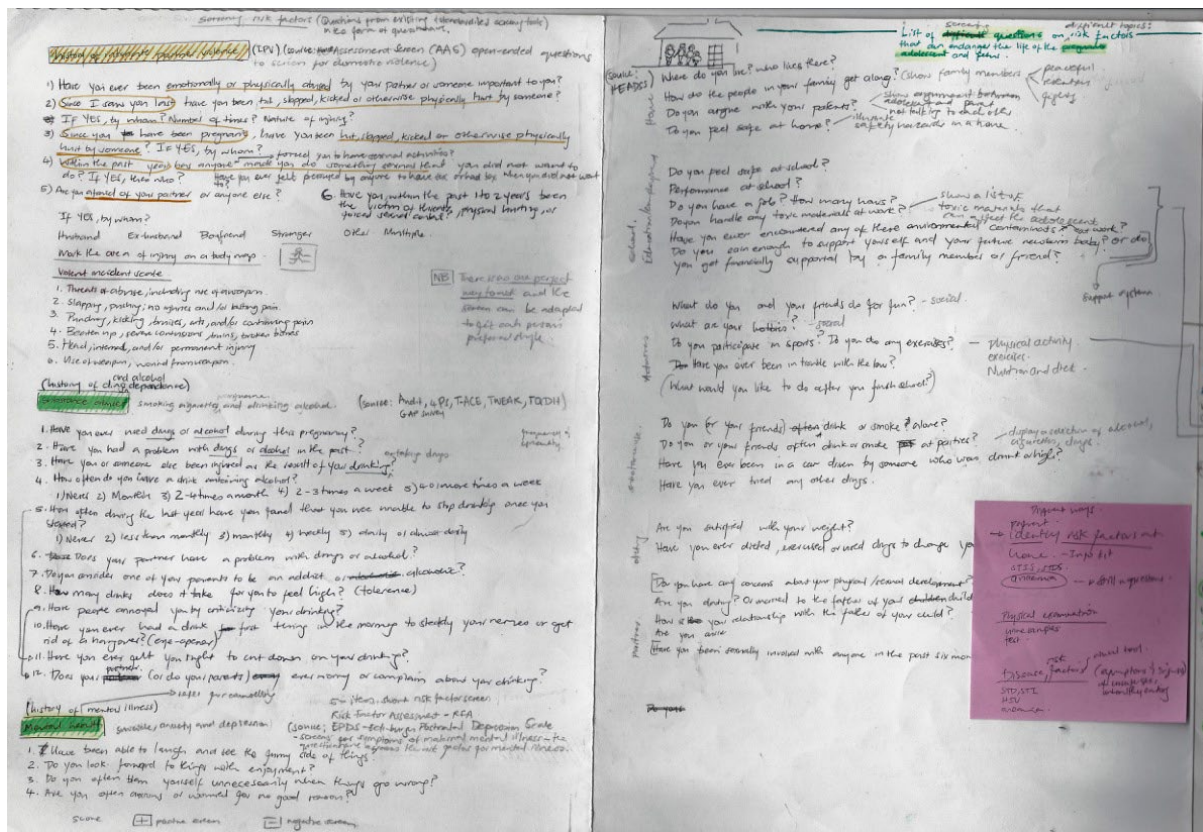 Screening risk factors (Questions from existing standardised screening tools)
in the form of questions.
(IPV) (source: Assessment Screen (AAS) open-ended questions
to screen for domestic violence)
1) Have you ever been emotionally or physically abused by your partner or someone important to you?
2) Since I saw you last have you been hit, slapped, kicked or otherwise physically hurt by someone?
If YES, by whom? Number of times? Nature of injury?
3) Since you have been pregnant, have you been hit, slapped, kicked or otherwise physically
hurt by someone? If YES, by whom?
forced you to have sexual activities?
4) Within the past year has anyone made you do something sexual that you did not want to
do? If YES, then who? Have you ever felt pressured by anyone to have sex when you did not want
to?
5) Are you afraid of your partner or anyone else?
6. Have you, within the past 1 to 2 years been
the victim of threats, physical hurting, or
forced sexual contact?
If YES, by whom?
Husband Ex-husband Boyfriend Stranger Other Multiple
Mark the area of injury on a body map
Violent incident score
1. Threats of abuse, including use of weapon
2. Slapping, pushing; no injuries and/or lasting pain
3. Punching, kicking, bruises, cuts, and/or continuing pain
4. Beaten up, severe contusions, burns, broken bones
5. Head, internal, and/or permanent injury
6. Use of weapon, wound from weapon
NB There is no one perfect
way to ask and the
screen can be adapted
to fit each person
preferred style
and alcohol
(history of drug dependence)
Substance abuse smoking cigarettes, and drinking alcohol. (source: Audit, 4P's, T-ACE, TWEAK, TQDH)
1. Have you ever used drugs or alcohol during this pregnancy?
2. Have you had a problem with drugs or alcohol in the past?
3. Have you or someone else been injured as the result of your drinking?
4. How often do you have a drink containing alcohol?
1) Never 2) Monthly 3) 2-4 times a month 4) 2-3 times a week 5) 4 or more times a week
5. How often during the last year have you found that you were unable to stop drinking once you
started?
1) Never 2) less than monthly 3) monthly 4) weekly 5) daily or almost daily
6. Does your partner have a problem with drugs or alcohol?
7. Do you consider one of your parents to be an addict or alcoholic?
8. How many drinks does it take for you to feel high? (tolerence)
9. Have people annoyed you by criticizing your drinking?
10. Have you ever had a drink first thing in the morning to steady your nerves or get
rid of a hangover? (eye-opener)
11. Have you ever felt you ought to cut down on your drinking?
partner
12. Does your (or do your parents) ever worry or complain about your drinking?
(history of mental illness)
5-items, short risk factor screen
Risk Factor Assessment - RFA
Mental health suicide, anxiety and depression (source: EPDS - Edinburgh Postnatal Depression Scale
- screens for symptoms of maternal mental illness - the
1. I Have been able to laugh and see the funny side of things.
2. Do you look forward to things with enjoyment?
3. Do you often blame yourself unnecessarily when things go wrong?
4. Are you often anxious or worried for no good reason?
score + positive screen - negative screen
screen difficult topics:
List of questions on risk factors
that can endanger the life of the pregnant
adolescent and fetus.
(source:
HEADSS)
Home
Where do you live? Who lives there?
How do the people in your family get along? (show family members
peaceful
fights
Do you argue with your parents?
show argument between
adolescent and parent
not talking to each other
Do you feel safe at home?
illustrate
safety hazards in a home
School
Do you feel safe at school?
Performance at school?
Do you have a job? How many hours?
Do you handle any toxic materials at work?
show a list of
toxic materials that
can affect the adolescent
Have you ever encountered any of these environmental contaminants? at work?
Do you earn enough to support yourself and your future newborn baby? or do
you get financially supported by a family member or friend?
Support system
Activities
What do you and your friends do for fun? - social
What are your hobbies? - social
Do you participate in sports? Do you do any exercises? - Physical activity
exercise
Nutrition and diet
Have you ever been in trouble with the law?
(What would you like to do after you finish school?)
Do you (or your friends) drink or smoke alone?
Do you or your friends often drink or smoke at parties?
display a selection of alcohol,
cigarettes, drugs.
Have you ever been in a car driven by someone who was drunk or high?
Have you ever tried any other drugs.
Are you satisfied with your weight?
Have you ever dieted, exercised or used drugs to change
Do you have any concerns about your physical/sexual development?
Are you dating? Or married to the father of your child
How is your relationship with the father of your child?
Are you
Have you been sexually involved with anyone in the past six
prevent
→ identify risk factors at
home
STIs, STDs
Physical examination
urine samples
test
risk visual tool
Disease factors (symptoms & signs)
STD, STI
HSV